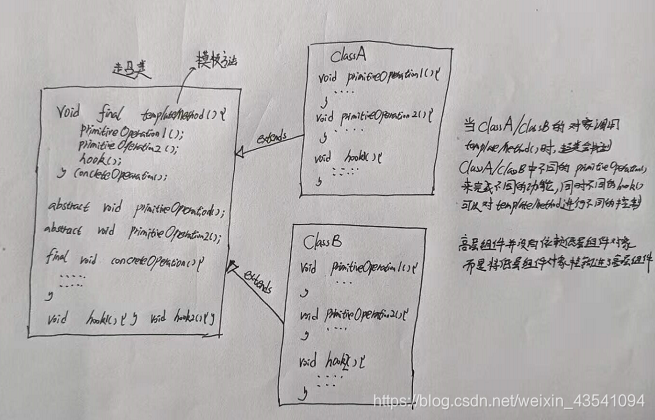 模板方法
void final templateMethod(){
primitiveOperation1();
primitiveOperation2();
hook();
concreteOperation();
}
abstract void primitiveOperation1();
abstract void primitiveOperation2();
final void concreteOperation(){
......
......
}
void hook1(){} void hook2(){}
extends
extends
ClassA
void primitiveOperation1(){
....
}
void primitiveOperation2(){
....
}
void hook1(){
......
}
ClassB
void primitiveOperation1(){
....
}
void primitiveOperation2(){
....
}
void hook2(){
....
....
}
当ClassA/ClassB的对象调用
templateMethod()时,
ClassA/ClassB中不同的primitiveOperation()
来完成不同的功能,同时不同的hook()
可以对templateMethod进行不同的控制
高层组件并没有依赖低层组件对象
而是将低层组件对象挂钩进高层组件
https://blog.csdn.net/weixin_43541094